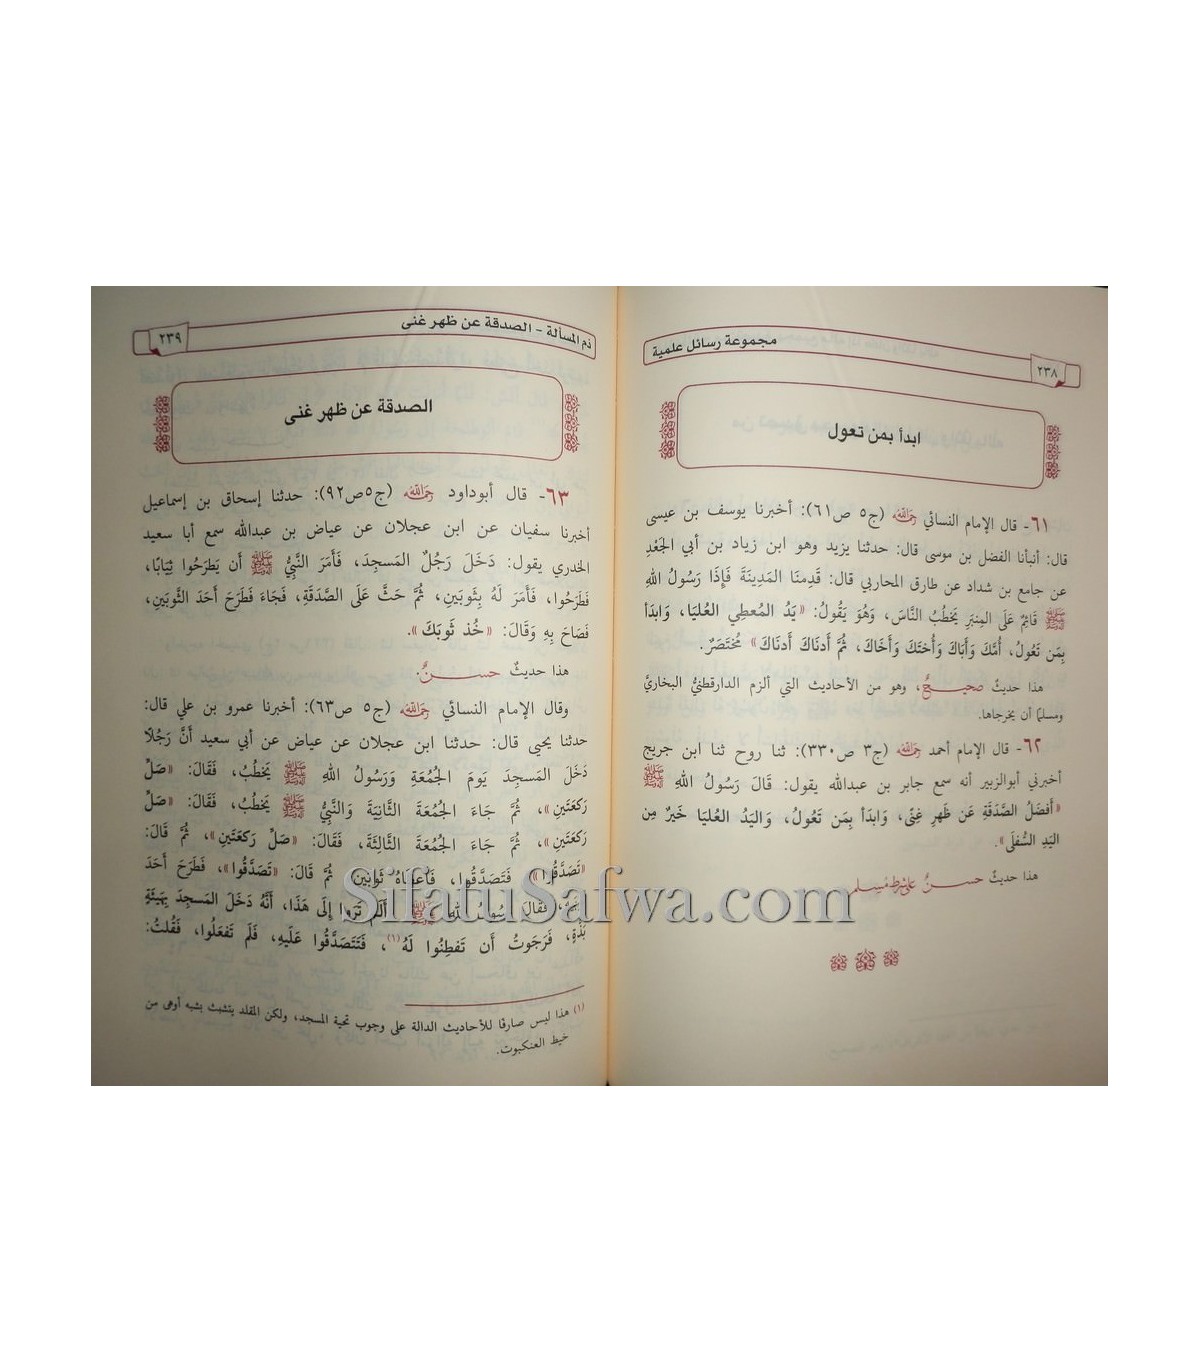 مجموعة رسائل علمية
٢٣٨
ابدأ بمن تعول
٦١- قال الإمام النسائي رحمه الله (ج٥ ص٦١): أخبرنا يوسف بن عيسى
قال: أنبأنا الفضل بن موسى قال: حدثنا يزيد وهو ابن زياد بن أبي الجَعْدِ
عن جامع بن شداد عن طارق المحاربي قال: قَدِمنَا المَدِينَةَ فَإِذَا رَسُولُ اللهِ
ﷺ قَائِمٌ عَلَى المِنبَرِ يَخطُبُ النَّاسَ، وَهُوَ يَقُولُ: «يَدُ المُعطِي العُليَا، وَابدَأ
بِمَن تَعُولُ، أُمَّكَ وَأَبَاكَ وَأُختَكَ وَأَخَاكَ، ثُمَّ أَدنَاكَ أَدنَاكَ» مُختَصَرٌ.
هذا حديثٌ صحيحٌ، وهو من الأحاديث التي ألزم الدارقطنيُّ البخاريَّ
ومسلمًا أن يخرجاها.
٦٢- قال الإمام أحمد رحمه الله (ج٣ ص٣٣٠): ثنا روح ثنا ابن جريج
أخبرني أبوالزبير أنه سمع جابر بن عبدالله يقول: قَالَ رَسُولُ اللهِ ﷺ
«أَفضَلُ الصَّدَقَةِ عَن ظَهرِ غِنًى، وَابدَأ بِمَن تَعُولُ، وَاليَدُ العُليَا خَيرٌ مِن
اليَدِ السُّفلَى».
هذا حديثٌ حسنٌ على شرط مُسلم
ذم المسألة - الصدقة عن ظهر غنى
٢٣٩
الصدقة عن ظهر غنى
٦٣- قال أبوداود رحمه الله (ج٥ص٩٢): حدثنا إسحاق بن إسماعيل
أخبرنا سفيان عن ابن عجلان عن عياض بن عبدالله سمع أبا سعيد
الخدري يقول: دَخَلَ رَجُلٌ المَسجِدَ، فَأَمَرَ النَّبِيُّ ﷺ أَن يَطرَحُوا ثِيَابًا،
فَطَرَحُوا، فَأَمَرَ لَهُ بِثَوبَينِ، ثُمَّ حَثَّ عَلَى الصَّدَقَةِ، فَجَاءَ فَطَرَحَ أَحَدَ الثَّوبَينِ،
فَصَاحَ بِهِ وَقَالَ: «خُذ ثَوبَكَ».
هذا حديثٌ حسنٌ.
وقال الإمام النسائي رحمه الله (ج٥ ص٦٣): أخبرنا عمرو بن علي قال:
حدثنا يحيى قال: حدثنا ابن عجلان عن عياض عن أبي سعيد أَنَّ رَجُلًا
دَخَلَ المَسجِدَ يَومَ الجُمُعَةِ وَرَسُولُ اللهِ ﷺ يَخطُبُ، فَقَالَ: «صَلِّ
رَكعَتَينِ»، ثُمَّ جَاءَ الجُمُعَةَ الثَّانِيَةَ وَالنَّبِيُّ ﷺ يَخطُبُ، فَقَالَ: «صَلِّ
رَكعَتَينِ»، ثُمَّ جَاءَ الجُمُعَةَ الثَّالِثَةَ، فَقَالَ: «صَلِّ رَكعَتَينِ»، ثُمَّ قَالَ:
«تَصَدَّقُوا»، فَتَصَدَّقُوا، فَأَعطَاهُ ثَوبَينِ، ثُمَّ قَالَ: «تَصَدَّقُوا»، فَطَرَحَ أَحَدَ
فَقَالَ رَسُولُ اللهِ ﷺ «أَلَم تَرَوا إِلَى هَذَا، أَنَّهُ دَخَلَ المَسجِدَ بِهَيئَةٍ
بَذَّةٍ، فَرَجَوتُ أَن تَفطِنُوا لَهُ(١)، فَتَتَصَدَّقُوا عَلَيهِ، فَلَم تَفعَلُوا، فَقُلتُ:
(١) هذا ليس صارفا للأحاديث الدالة على وجوب تحية المسجد، ولكن المقلد يتشبث بشبه أوهى من
خيط العنكبوت.
SifatuSafwa.com